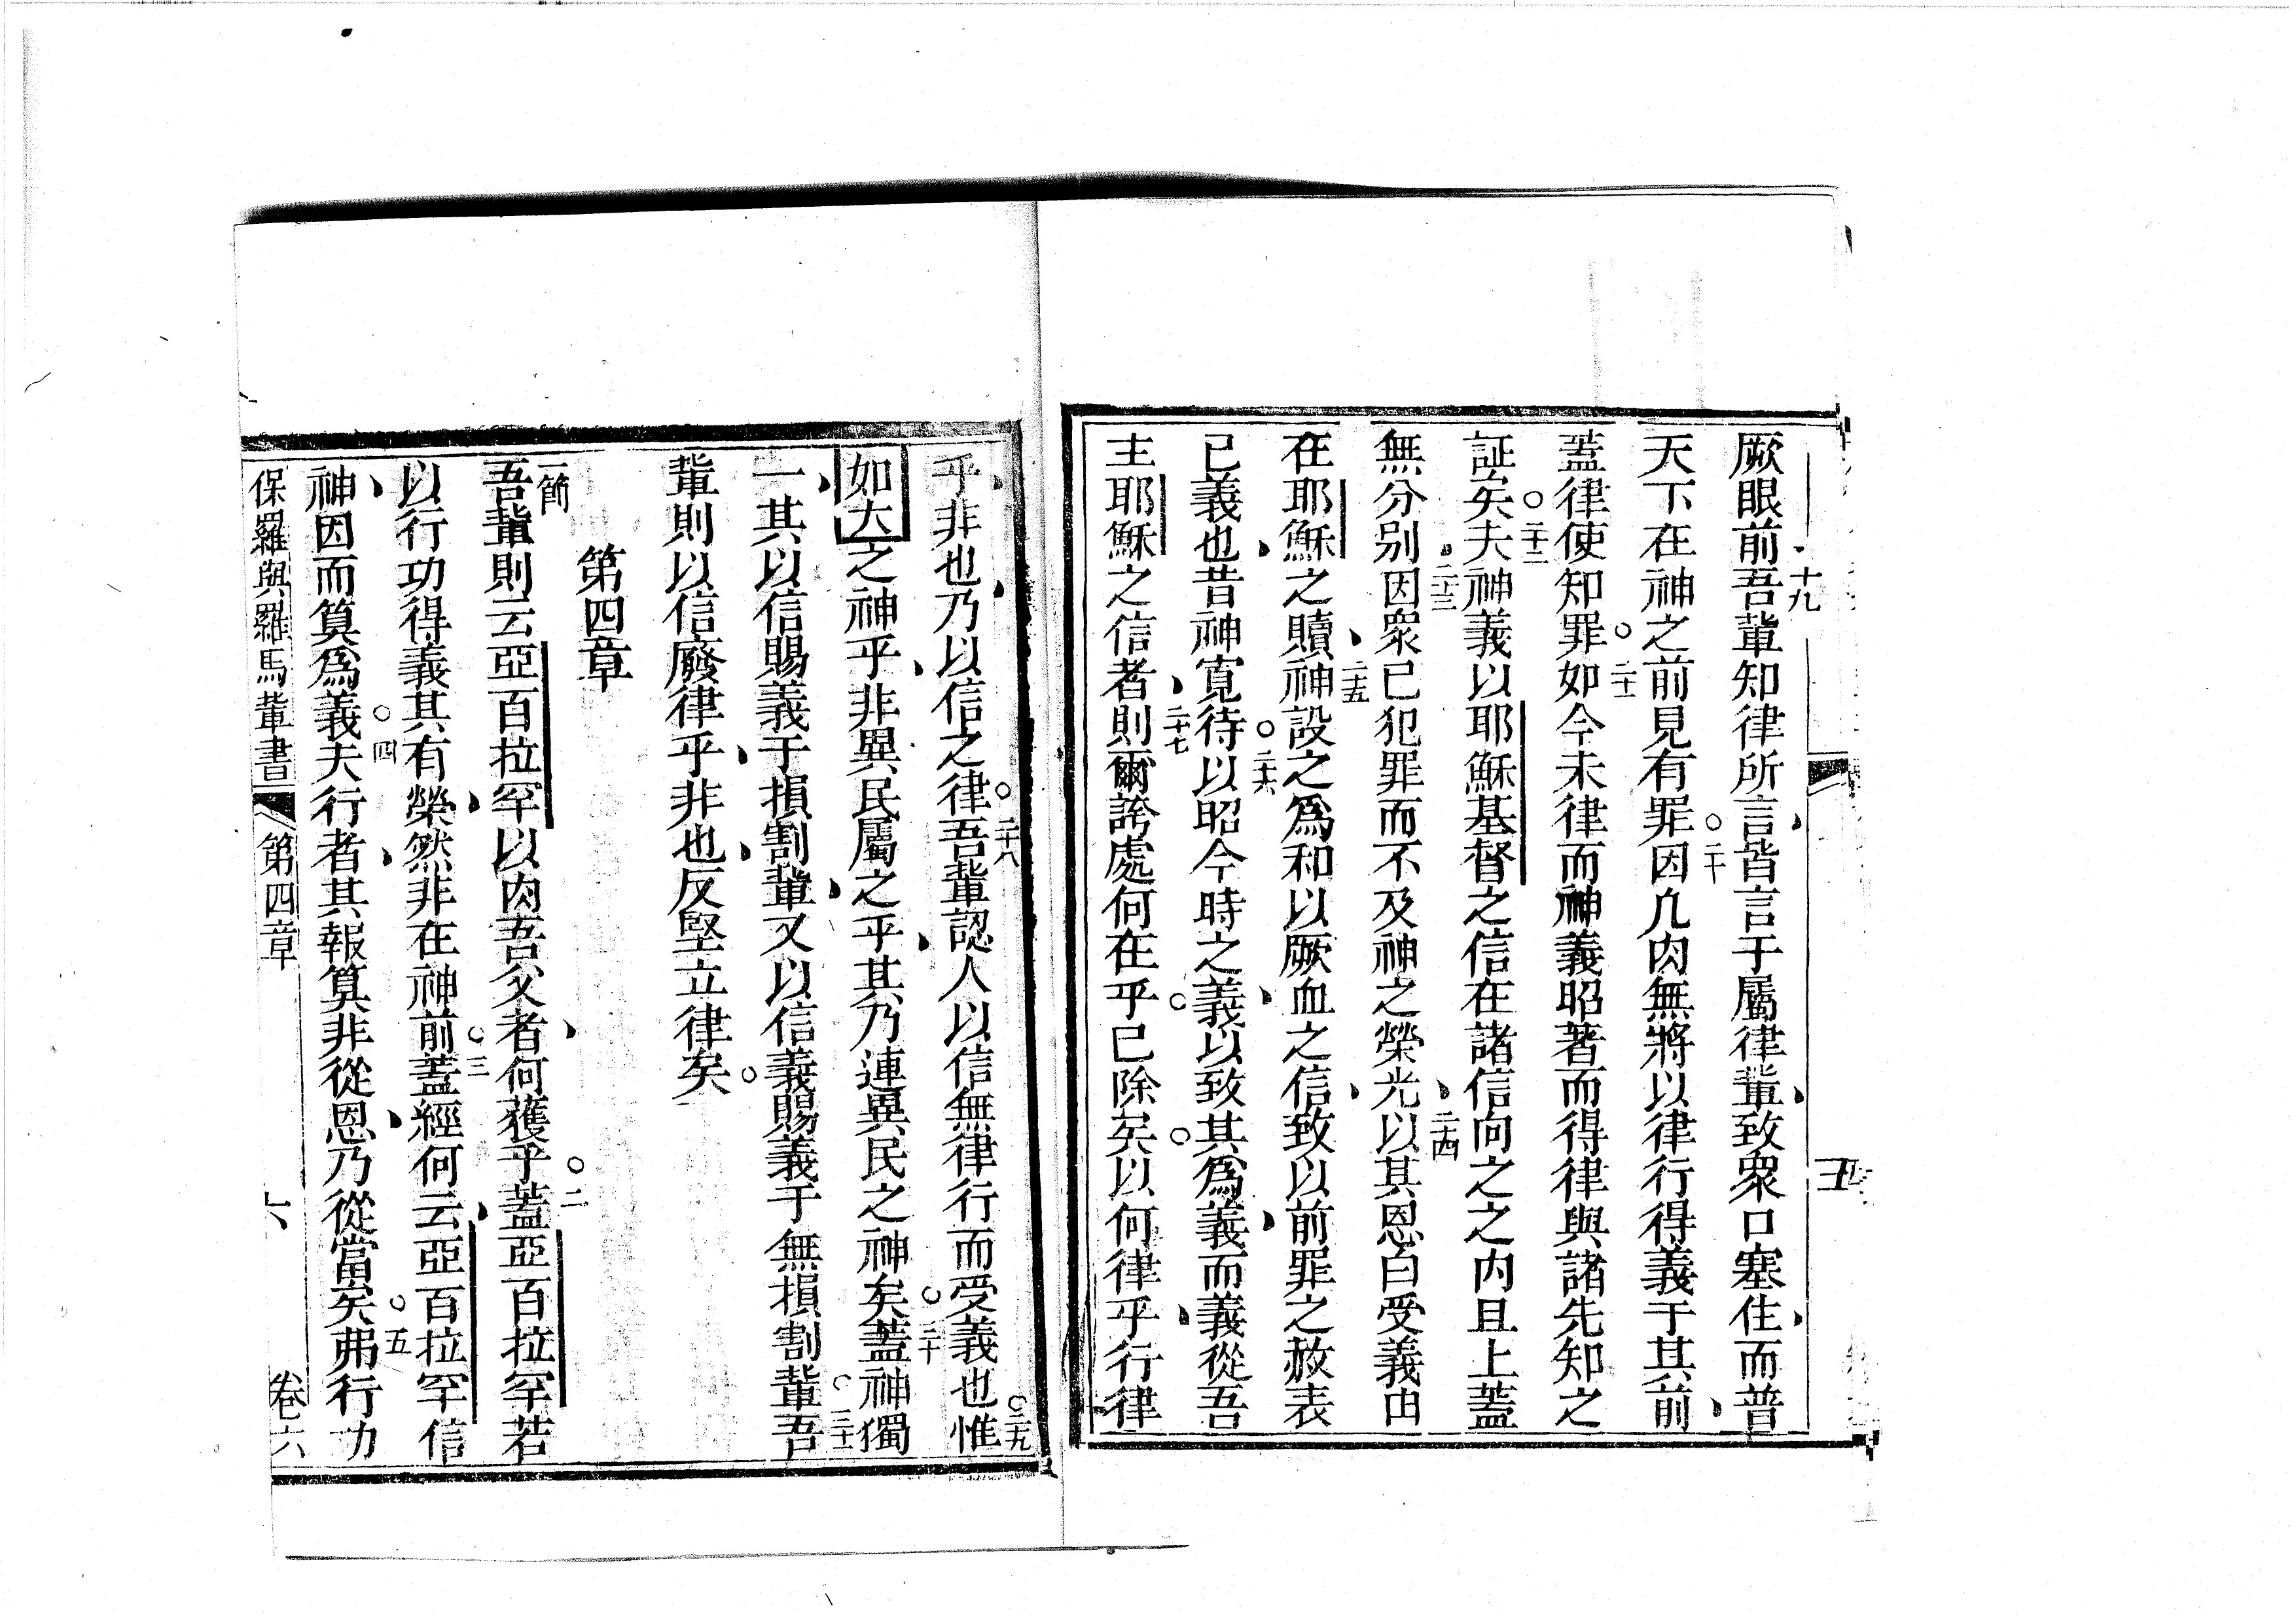 厥眼前吾輩知律所言皆言于屬律輩致衆口塞住而普
十九
天下在神之前見有罪因凢肉無將以律行得義于其前
二十
蓋律使知罪如今未律而神義昭著而得律與諸先知之
二十一
証矣夫神義以耶穌基督之信在諸信向之之内且上蓋
二十二
無分别因衆已犯罪而不及神之榮光以其恩白受義由
二十三
二十四
在耶穌之贖神設之爲和以厥血之信致以前罪之赦表
二十五
已義也昔神寬待以昭今時之義以致其爲義而義從吾
二十六
主耶穌之信者則爾誇處何在乎已除矣以何律乎行律
二十七
五
乎非也乃以信之律吾輩認人以信無律行而受義也惟
二十八
二十九
如大之神乎非異民屬之乎其乃連異民之神矣蓋神獨
三十
一其以信賜義于損割輩又以信義賜義于無損割輩吾
三十一
輩則以信廢律乎非也反堅立律矣
第四章
一節
吾輩則云亞百拉罕以肉吾父者何獲乎蓋亞百拉罕若
二
以行功得義其有榮然非在神前蓋經何云亞百拉罕信
三
神因而算爲義夫行者其報算非從恩乃從當矣弗行功
四
五
保羅與羅馬輩書 第四章 六 卷六